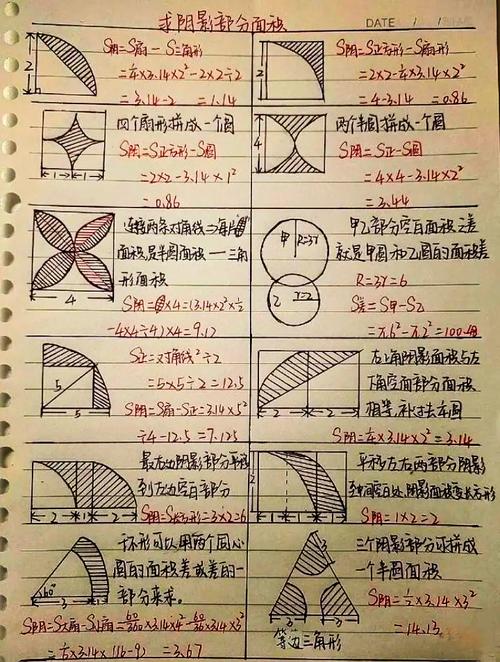 求阴影部分面积
DATE
2
S阴=S扇-S三角形
=¼×3.14×2²-2×2÷2
=3.14-2 =1.14
2
S阴=S正方形-S扇形
=2×2-¼×3.14×2²
=4-3.14 =0.86
1 1
四个扇形拼成一个圆
S阴=S正方形-S圆
=2×2-3.14×1²
=0.86
4
两个半圆拼成一个圆
S阴=S正-S圆
=4×4-3.14×2²
=3.44
4
连接两条对角线
面积是半圆面积-三角
形面积
S阴= ×4=(3.14×2²×½
-4×4÷4)×4=9.12
甲 R=3r
乙 r=2
甲乙部分空白面积之差
就是甲圆和乙圆的面积差
R=3r=6
S差=S甲-S乙
=π.6²-π.2²=100.48
5
5
S正=对角线²÷2
=5×5÷2=12.5
S阴=S扇-S正=3.14×5²
÷4-12.5=7.125
2 2
左上角阴影面积与右
下角空白部分面积
相等,补过去
S阴=¼×3.14×2²=3.14
2 1 2
最右边阴影部分平移
到左边空白部分
S阴=S长方形=3×2=6
2
1 2
平移左右两部分阴影
到中间空白处,阴影面积变长方形
S阴=1×2=2
60°
3
环形可以用两个同心
圆的面积差或差的一
部分来求。
S阴影=S大扇-S小扇=60/360×3.14×4²-60/360×3.14×3²
=⅙×3.14×(16-9)=3.67
3
3 3
等边三角形
三个阴影部分可拼成
一个半圆面积
S阴=½×3.14×3²
=14.13